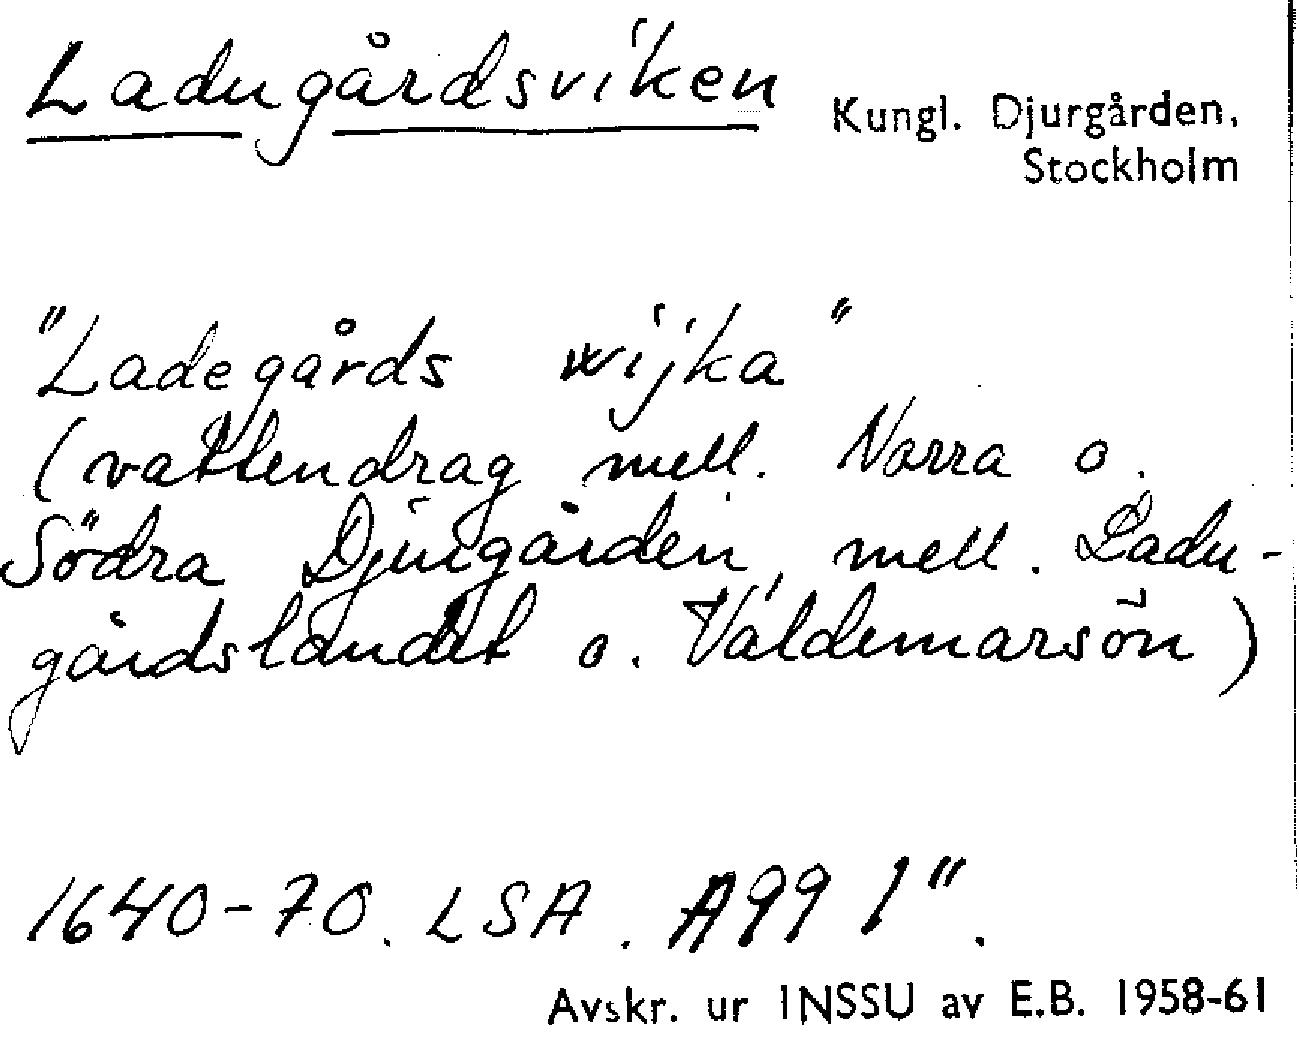 Ladugårdsviken
Kungl. Djurgården,
Stockholm
"Ladegårds wijka"
(vattendrag mell. Norra o.
Södra Djurgården, mell. Ladu-
gårdslandet o. Valdemarsön)
1640-70. LSA. A99 1".
Avskr. ur INSSU av E.B. 1958-61